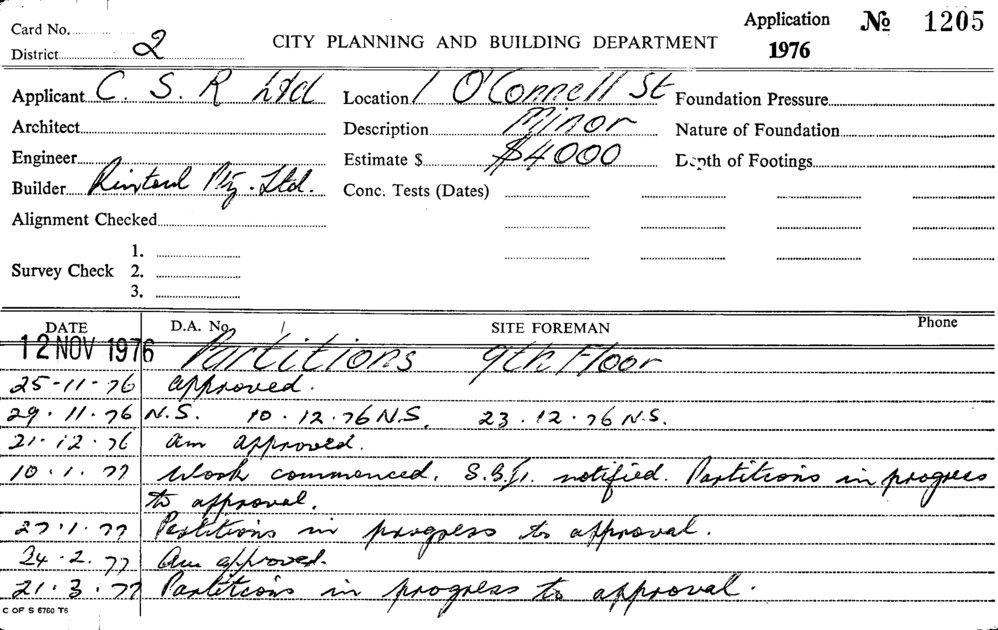 Card No. Application No 1205
District 2 CITY PLANNING AND BUILDING DEPARTMENT 1976
Applicant C. S. R Ltd Location 1 O'Connell St Foundation Pressure
Architect Description Minor Nature of Foundation
Engineer Estimate $ $4000 Depth of Footings
Builder Pty. Ltd. Conc. Tests (Dates)
Alignment Checked
1.
Survey Check 2.
3.
DATE D.A. No. SITE FOREMAN Phone
12 NOV 1976 Partitions 9th Floor
25-11-76 approved.
29.11.76 N.S. 10.12.76 N.S. 23.12.76 N.S.
21.12.76 Am approved.
10.1.77 Work commenced. notified. Partitions in progress
to approval.
27.1.77 Partitions in progress to approval.
24.2.77 Am approved.
21.3.77 Partitions in progress to approval.
C OF S 6760 T6